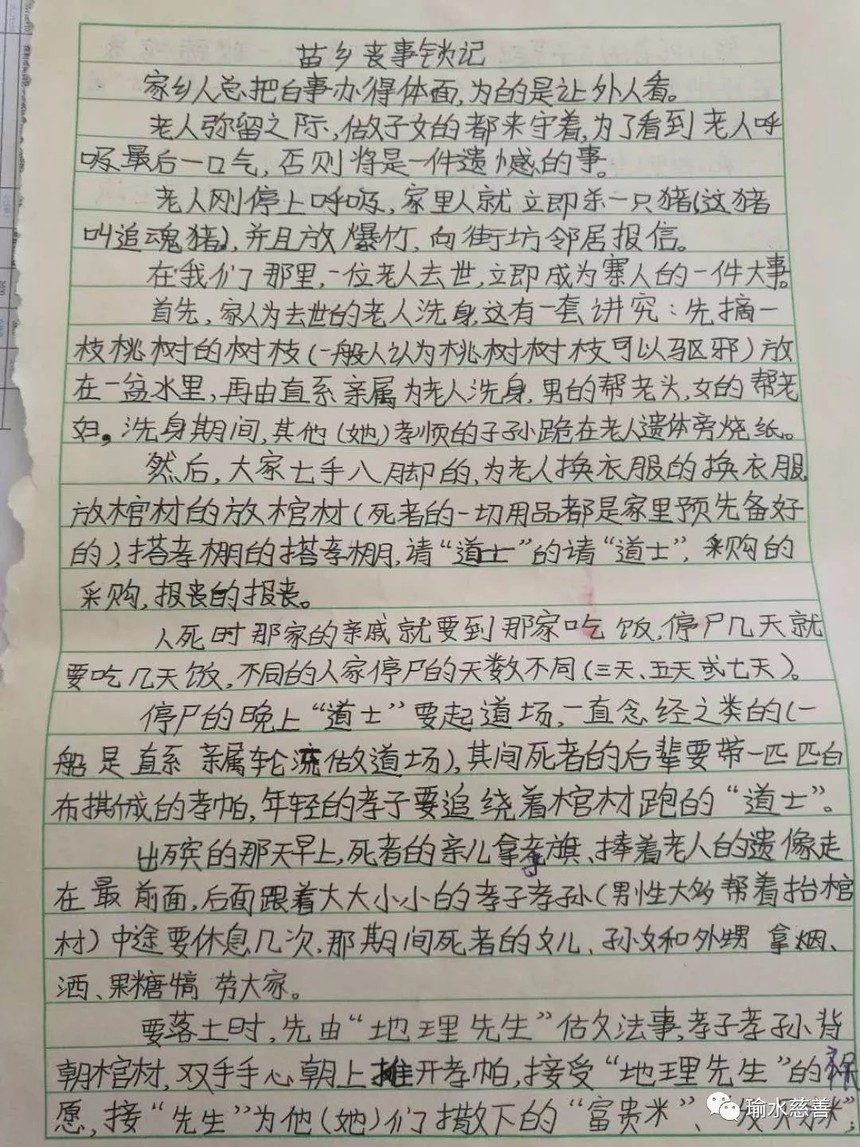 苗乡丧事锁记
家乡人总把白事办得体面,为的是让外人看。
老人弥留之际,做子女的都来守着,为了看到老人呼
吸最后一口气,否则将是一件遗憾的事。
老人刚停止呼吸,家里人就立即杀一只猪(这猪
叫追魂猪),并且放爆竹,向街坊邻居报信。
在我们了那里,一位老人去世,立即成为寨人的一件大事。
首先,家人为去世的老人洗身,这有一套讲究:先摘一
枝桃树的树枝(一般人认为桃树树枝可以驱邪)放
在一盆水里,再由直系亲属为老人洗身,男的帮老头,女的帮老
妇。洗身期间,其他(她)孝顺的子孙跪在老人遗体旁烧纸。
然后,大家七手八脚的,为老人换衣服的换衣服,
放棺材的放棺材(死者的一切用品都是家里预先备好
的),搭孝棚的搭孝棚,请“道士”的请“道士”,采购的
采购,报丧的报丧。
人死时那家的亲戚就要到那家吃饭,停尸几天就
要吃几天饭,不同的人家停尸的天数不同(三天、五天或七天)。
停尸的晚上“道士”要起道场,一直念经之类的(一
船是直系亲属轮流做道场),其间死者的后辈要带一匹匹白
布撕成的孝帕,年轻的孝子要追绕着棺材跑的“道士”。
出殡的那天早上,死者的亲儿拿孝旗、捧着老人的遗像走
在最前面,后面跟着大大小小的孝子孝孙(男性大多帮着抬棺
材)中途要休息几次,那期间死者的女儿、孙女和外甥拿烟、
洒、果糖犒劳大家。
要落土时,先由“地理先生”做法事,孝子孝孙背
朝棺材,双手手心朝上摊开孝帕,接受“地理先生”的
愿,接“先生”为他(她)们撒下的“富贵米”、
瑜水慈善